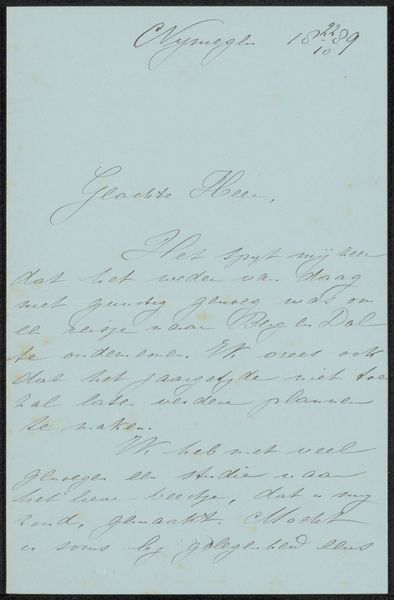 Nymegen 18 22/10 89
Geachte Heer,
Het spyt my zeer
dat het weder van daag
niet gunstig genoeg was om
een reisje naar Berg en Dal
te ondernemen. Ik vrees ook
dat het jaargetijde niet toe
zal laten verdere plannen
te maken.
Ik heb met veel
genoegen een studie naar
het lieve beestje, dat u my
zond, gemaakt. Mocht
u soms by gelegenheid eens